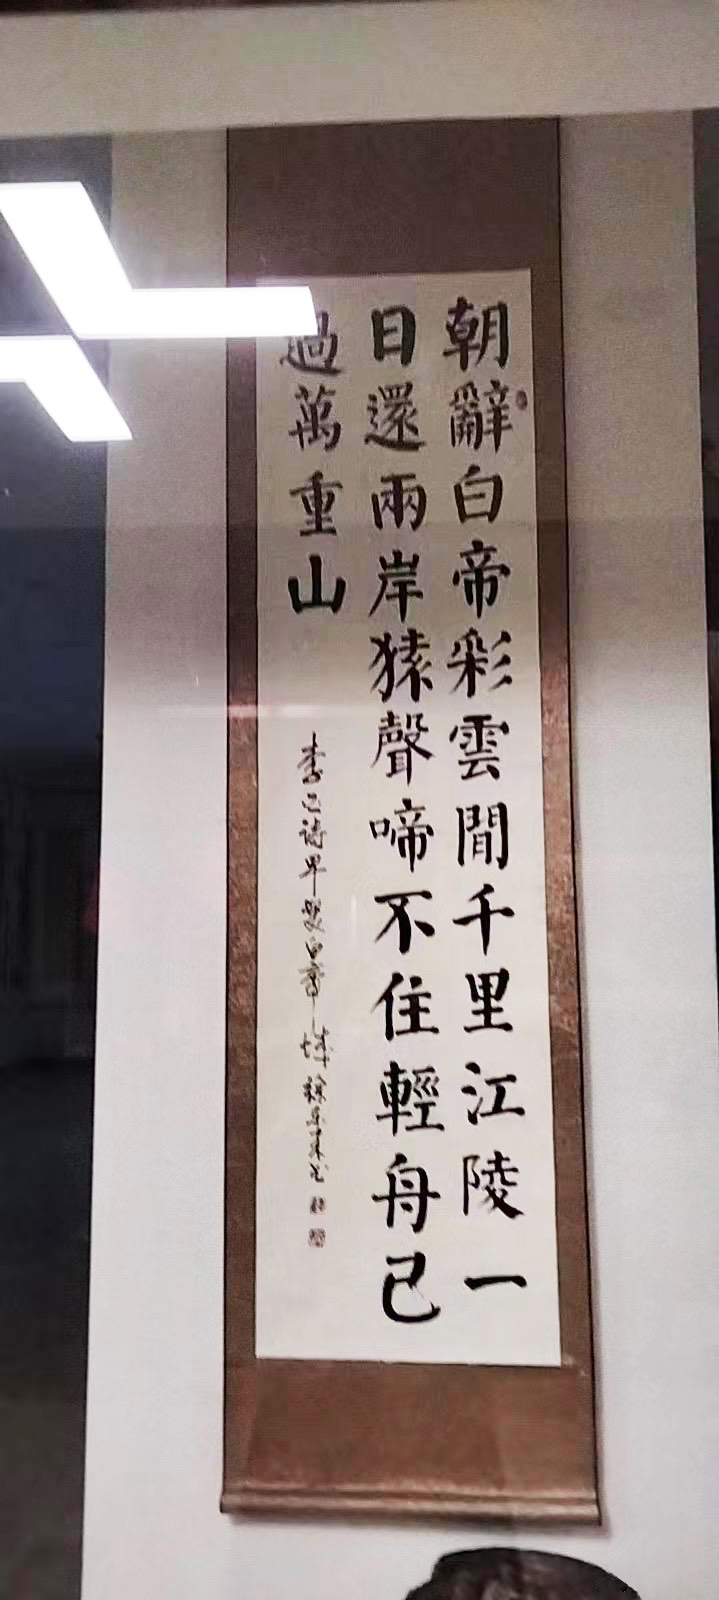 朝辭白帝彩雲間千里江陵一
日還兩岸猿聲啼不住輕舟已
過萬重山
李白詩早發白帝城